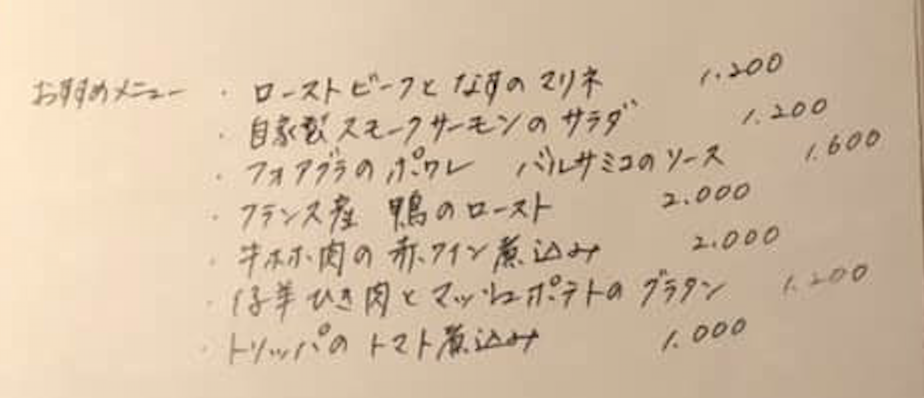 おすすめメニュー ・ローストビーフとなすのマリネ 1.200
・自家製スモークサーモンのサラダ 1.200
・フォアグラのポワレ バルサミコのソース 1.600
・フランス産 鴨のロースト 2.000
・牛ホホ肉の赤ワイン煮込み 2.000
・仔羊ひき肉とマッシュポテトのグラタン 1.200
・トリッパのトマト煮込み 1.000